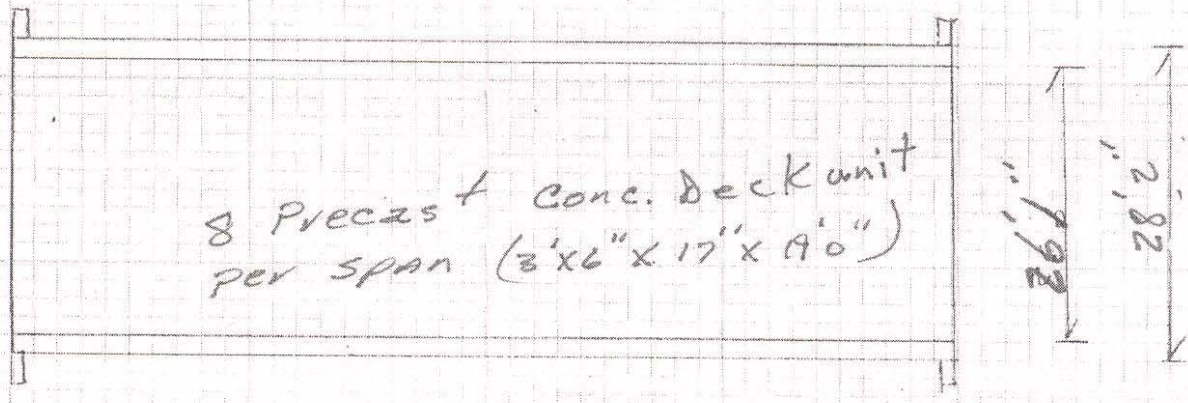 8 Precast Conc. Deck unit
per span (3'x6" x 17" x 19'0")
26'1"
28'2"